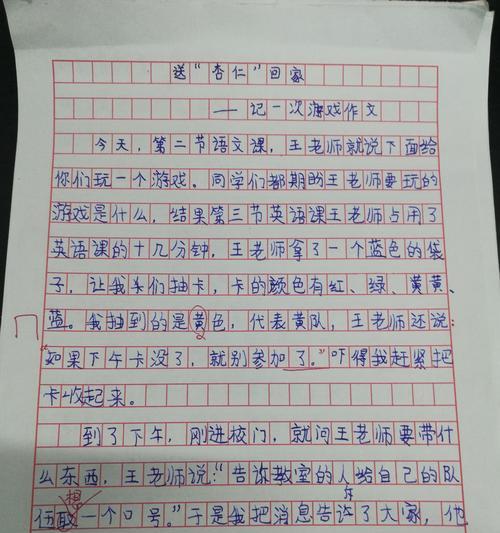 送“杏仁”回家
——记一次游戏作文
今天，第二节语文课，王老师就说下面给
你们玩一个游戏。同学们都期盼王老师要玩的
游戏是什么，结果第三节英语课王老师占用了
英语课的十几分钟，王老师拿了一个蓝色的袋
子，让我们抽卡，卡的颜色有红、绿、黄黄、
蓝。我抽到的是黄色，代表黄队，王老师还说：
“如果下午卡没了，就别参加了。”吓得我赶紧把
卡收起来。
到了下午，刚进校门，就问王老师要带什
么东西，王老师说：“告诉教室的人给自己的队
想
伍取一个口号。”于是我把消息告许了大家，他